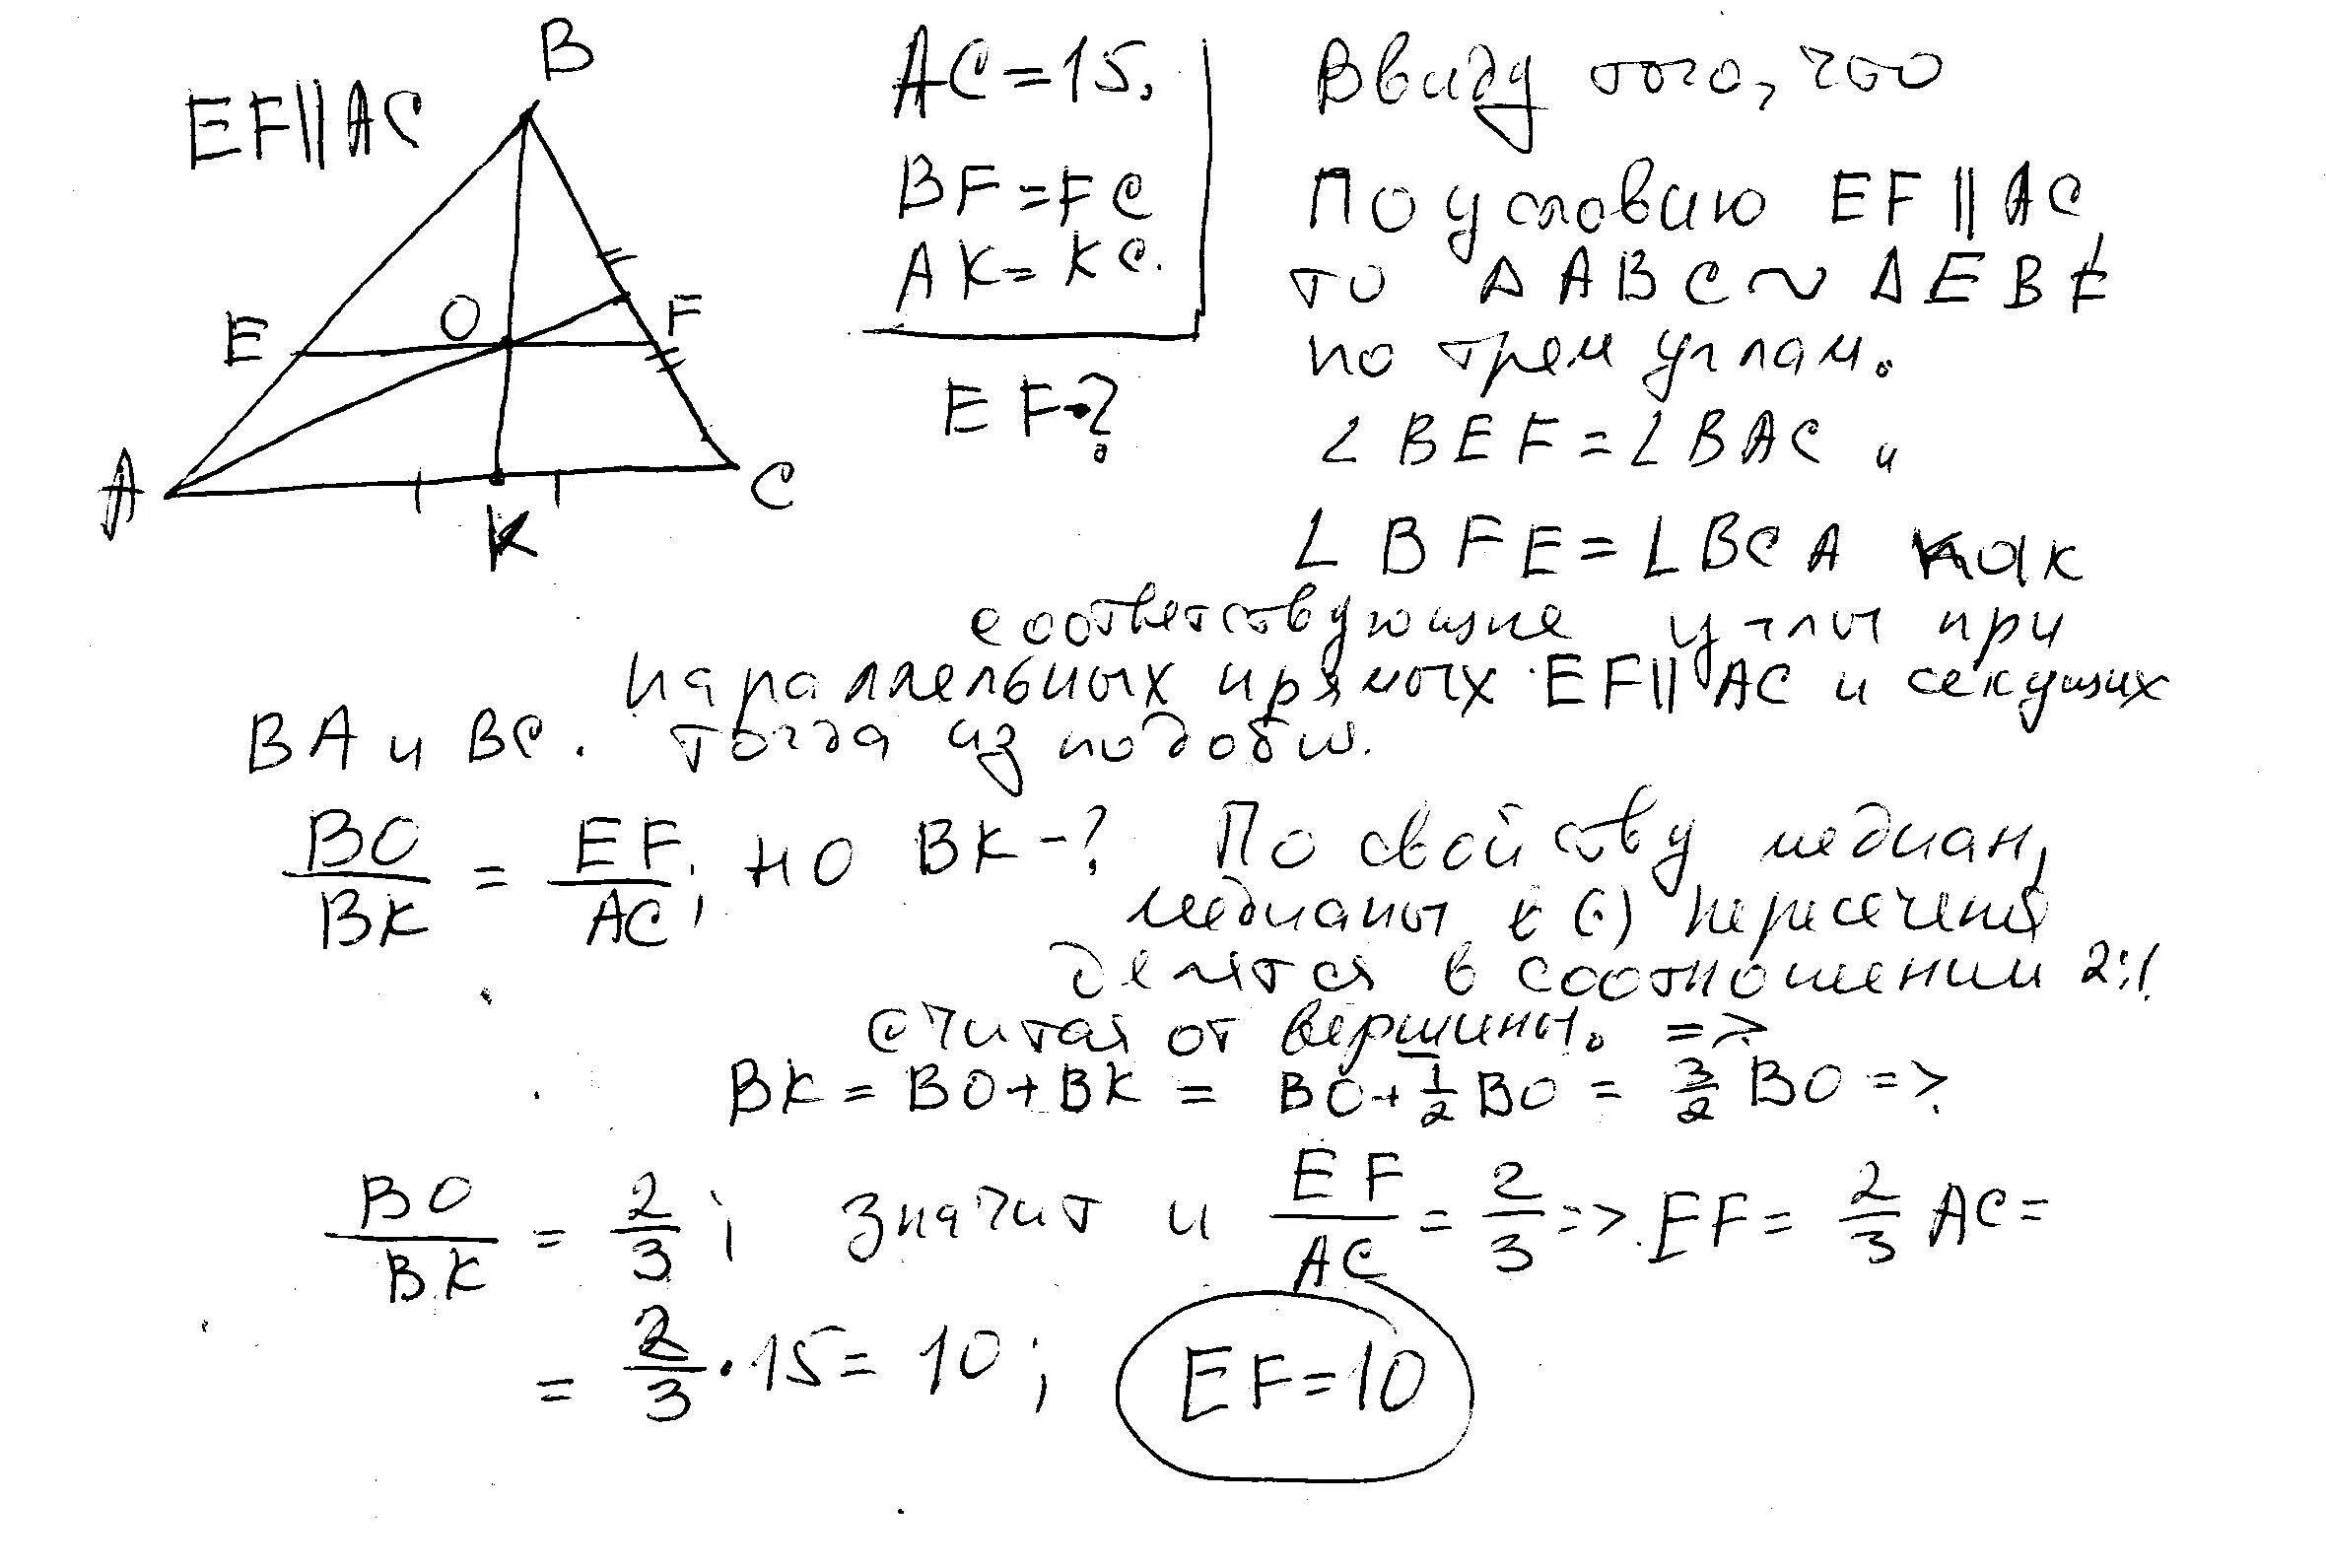 B
EF || AC
E
O
F
A
K
C
AC = 15.
BF = FC
AK = KC.
EF - ?
Ввиду того, что
По условию EF || AC,
то Δ ABC ~ Δ EBF
по трем углам.
∠ BEF = ∠ BAC и
∠ BFE = ∠ BCA как
соответствующие углы при
параллельных прямых EF || AC и секущих
BA и BC. тогда из подобия.
BO/BK = EF/AC; но BK - ? По свойству медиан,
медианы в (·) пересечения
делятся в соотношении 2:1
считая от вершины. =>
BK = BO + BK = BO + 1/2 BO = 3/2 BO =>
BO/BK = 2/3; значит и EF/AC = 2/3 => EF = 2/3 AC =
= 2/3 · 15 = 10; EF = 10